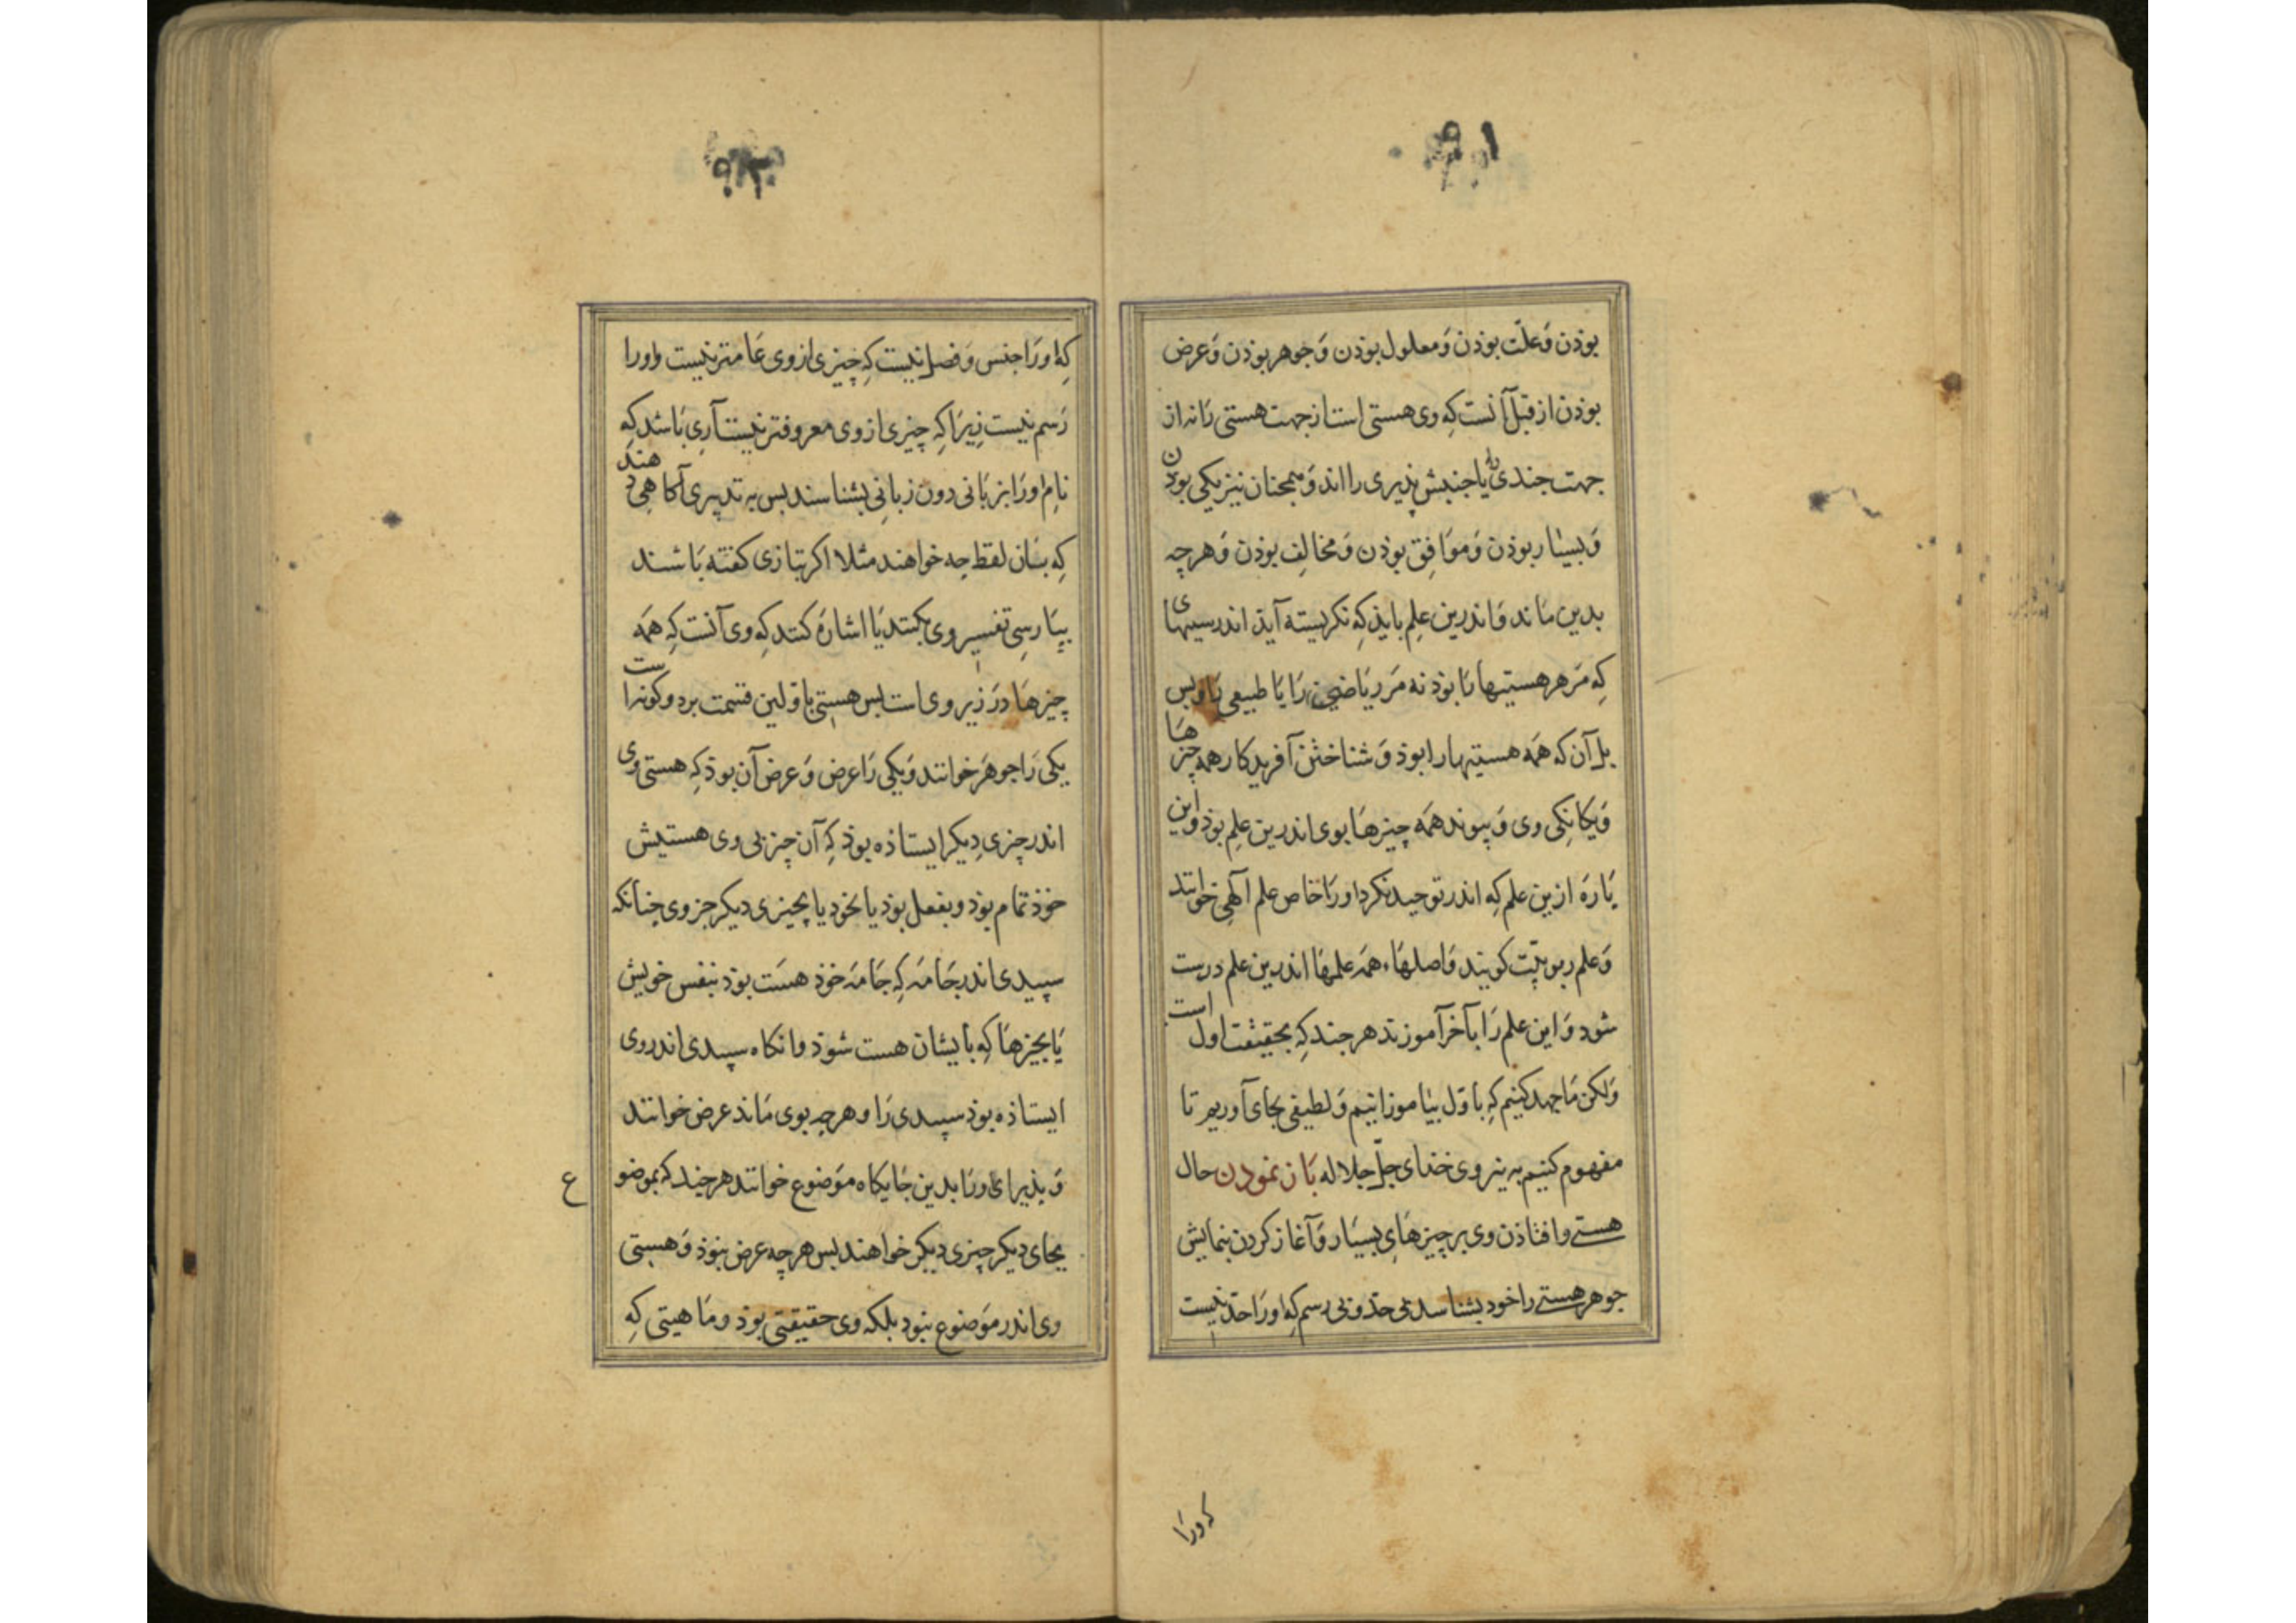 بوذن وَعلّت بوذن وَمعلول بوذن وَجوهر بوذن وَعرض
بوذن از قبل آنست کِه وی هستی است از جهت هستی رَا نه از
جهت جندی یا جنبش پذیری را اند وَهمجنان نیز یکی بوذن
وَبسیار بوذن وَموَافِق بوذن وَمخالِف بوذن وَهرچه
بدین مَاند وَاندرین علِم بایذ کِه نکریسته آیذ اندر سببهای
کِه مَر هر هستیها رَا بوذ نه مَر ریَاضی رَا یَا طبیعی رَا وبس
بل آن که همَه هستیها را بوذ وَشناختن آفریدکار همه چیزهَا
وَیکَانکِی وی وَپیوند همَه چیزهَا بوی اندرین علِم بوذ واین
پَارَه ازین علم کِه اندر توحید نکرد اورَا خاص علم آلهِی خوانند
وَعلم ربوبیّت کویند وَاصلهَاء همَه علمهَا اندرین علم درست
شود وَاین علم رَا بآخر آموزند هرجند کِه بحقیقت اول است
وَلکن مَا جهد کنیم کِه باوّل بیاموزانیم وَلطیفی بجای آوریم تا
مفهوم کنیم به نیروی خذای جلّ جلاله بَاز نمودن حال
هستی وافتاذن وی بر چیزهَایِ بسیَار وَآغاز کردن بنمایش
جوهر هستی را خود بشناسد بی حدّ وبی رسم کِه اورَا حدّ نیست
که ورَا
۹۲
کِه اورَا جنس وَفصل نیست کِه چیزی از وی عَامتر نیست واورا
رَسم نیست زیرَا کِه چیزی از وی معروفتر نیست آری بَاشد کِه
نام اورَا بزبَانی دون زبانی بشناسند پس به تدبیری آکاهی دهند
کِه بذان لفظ چه خواهند مثلا اکر بتازی کفته بَاشند
بپَارسِی تفسیر وی بکنند یَا اشارَه کنند کِه وی آنست کِه همَه
چیزهَا دَر زیر وی است پس هستی باوّلین قسمت بر دو کونه است
یکی رَا جوهَر خوانند وَیکی رَا عرض وَعرض آن بوذ کِه هستی وی
اندر چیزی دِیکر ایستاذه بوذ کِه آن چیز بی وی هستیش
خوذ تمام بوذ وبفعل بوذ یا بخود یا بچیزی دیکر جز وی جنانکه
سپیدی اندر جَامَه کِه جَامَه خوذ هسَت بوذ بنفس خویش
یَا بچیزهَا کِه بایشان هست شوذ وانکاه سپیدی اندر وی
ایستاذه بوذ سپیدی رَا وهرچه بوی مَاند عرض خوانند
وَپذیرای ورَا بدین جَایکاه موَضوع خوانند هرچند که بموضوع
بجای دیکر چیزی دیکر خواهند پس هرچه عرض نبوذ وَهستی
وی اندر موَضوع نبود بلکه وی حقیقتی بوذ ومَاهیتی کِه